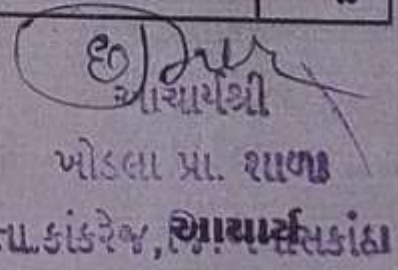 આચાર્યશ્રી
ખોડલા પ્રા. શાળા
તા.કાંકરેજ, આચાર્ય